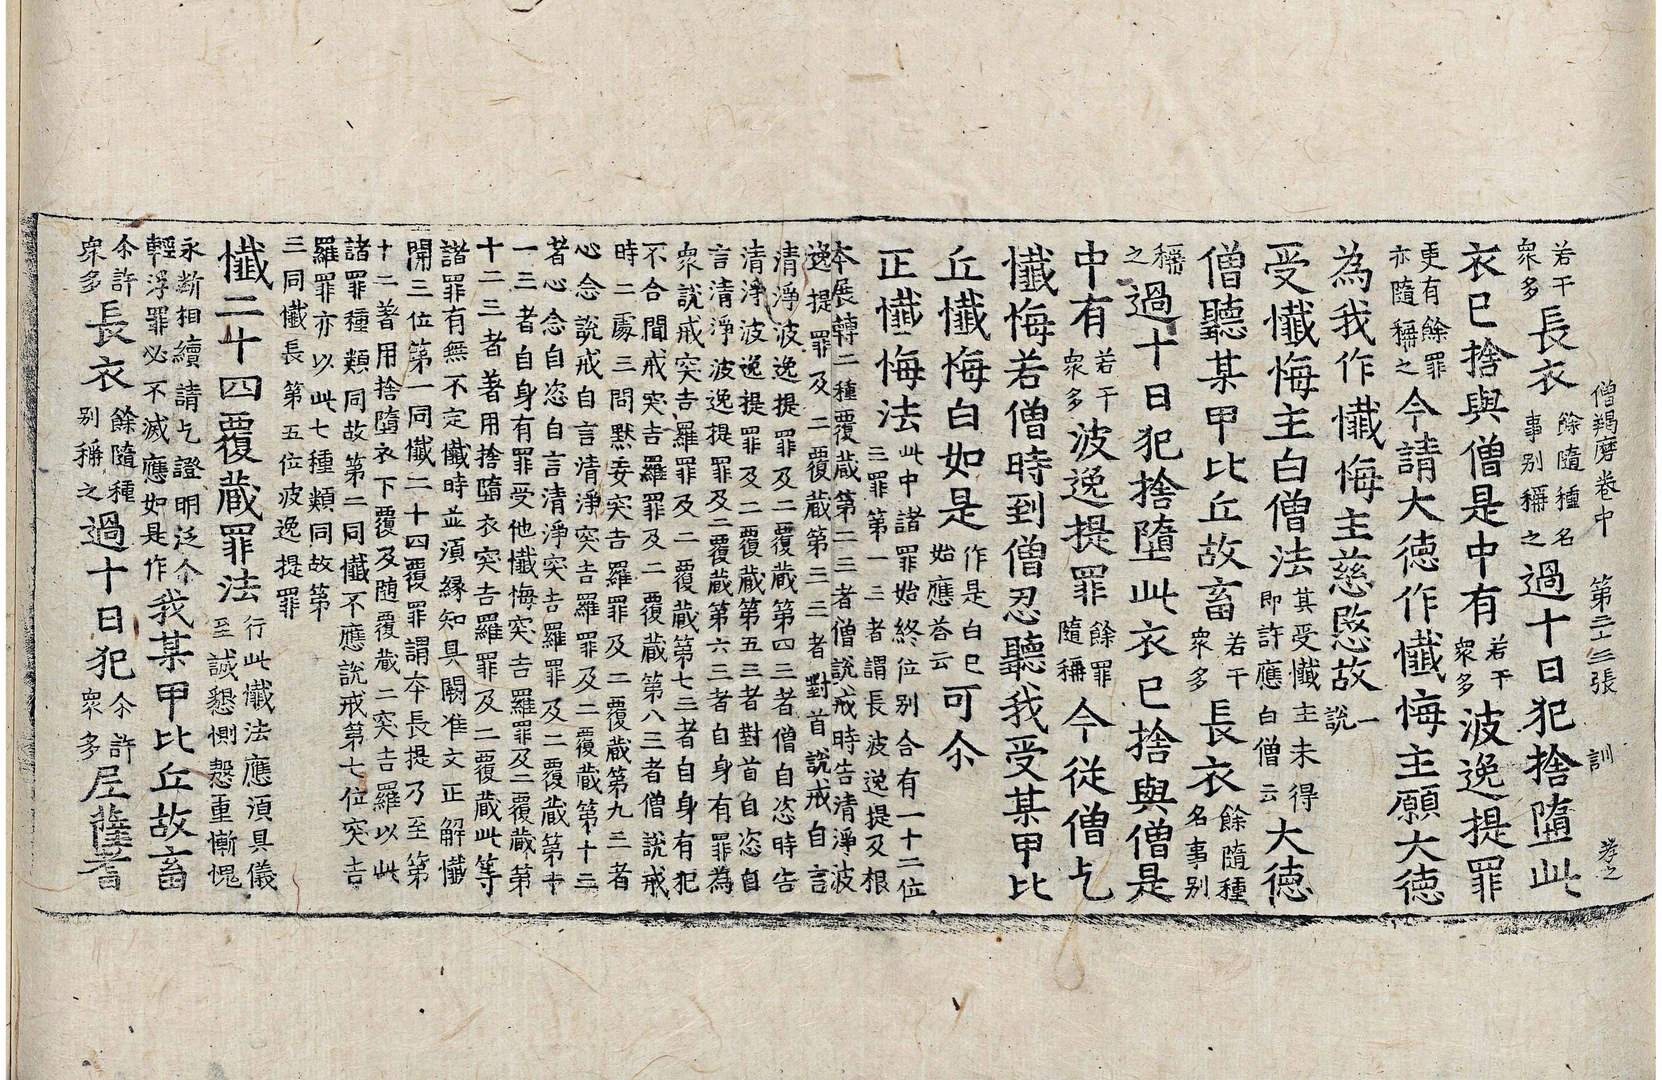 僧羯磨卷中 第二十三張 訓 孝之
若干衆多長衣餘隨種名事別稱之過十日犯捨墮此
衣已捨與僧是中有若干衆多波逸提罪
更有餘罪亦隨稱之今請大德作懺悔主願大德
為我作懺悔主慈愍故一說
受懺悔主白僧法其受懺主未得即許應白僧云大德
僧聽某甲比丘故畜若干衆多長衣餘隨種名事別
稱之過十日犯捨墮此衣已捨與僧是
中有若干衆多波逸提罪餘罪隨稱今從僧乞
懺悔若僧時到僧忍聽我受某甲比
丘懺悔白如是作是白已始應荅云可尒
正懺悔法此中諸罪始終位別合有一十二位三罪第一三者謂長波逸提及根
本展轉二種覆蔵第二三者僧說戒時告清淨波
逸提罪及二覆蔵第三三者對首說戒自言
清淨波逸提罪及二覆蔵第四三者僧自恣時告
清淨波逸提罪及二覆蔵第五三者對首自恣自
言清淨波逸提罪及二覆蔵第六三者自身有罪為
衆說戒突吉羅罪及二覆蔵第七三者自身有犯
不合聞戒突吉羅罪及二覆蔵第八三者僧說戒
時二處三問默妄突吉羅罪及二覆蔵第九三者
心念說戒自言清淨突吉羅罪及二覆蔵第十三
者心念自恣自言清淨突吉羅罪及二覆蔵第十
一三者自身有罪受他懺悔突吉羅罪及二覆蔵第
十二三者著用捨墮衣突吉羅罪及二覆蔵此等
諸罪有無不定懺時並湏緣知具闕准文正解懺
開三位第一同懺二十四覆罪謂夲長提乃至第
十二著用捨墮衣下覆及随覆蔵二突吉羅以此
諸罪種類同故第二同懺不應說戒第七位突吉
羅罪亦以此七種類同故第
三同懺長第五位波逸提罪
懺二十四覆蔵罪法行此懺法應湏具儀至誠懇惻慇重慚愧
永断相續請乞證明泛尒輕浮罪必不滅應如是作我某甲比丘故畜
尒許衆多長衣餘隨種別稱之過十日犯尒許衆多尼薩耆